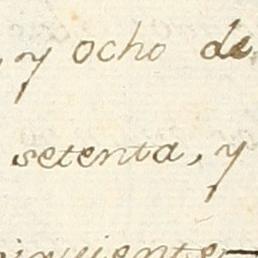 , y ocho de
setenta, y